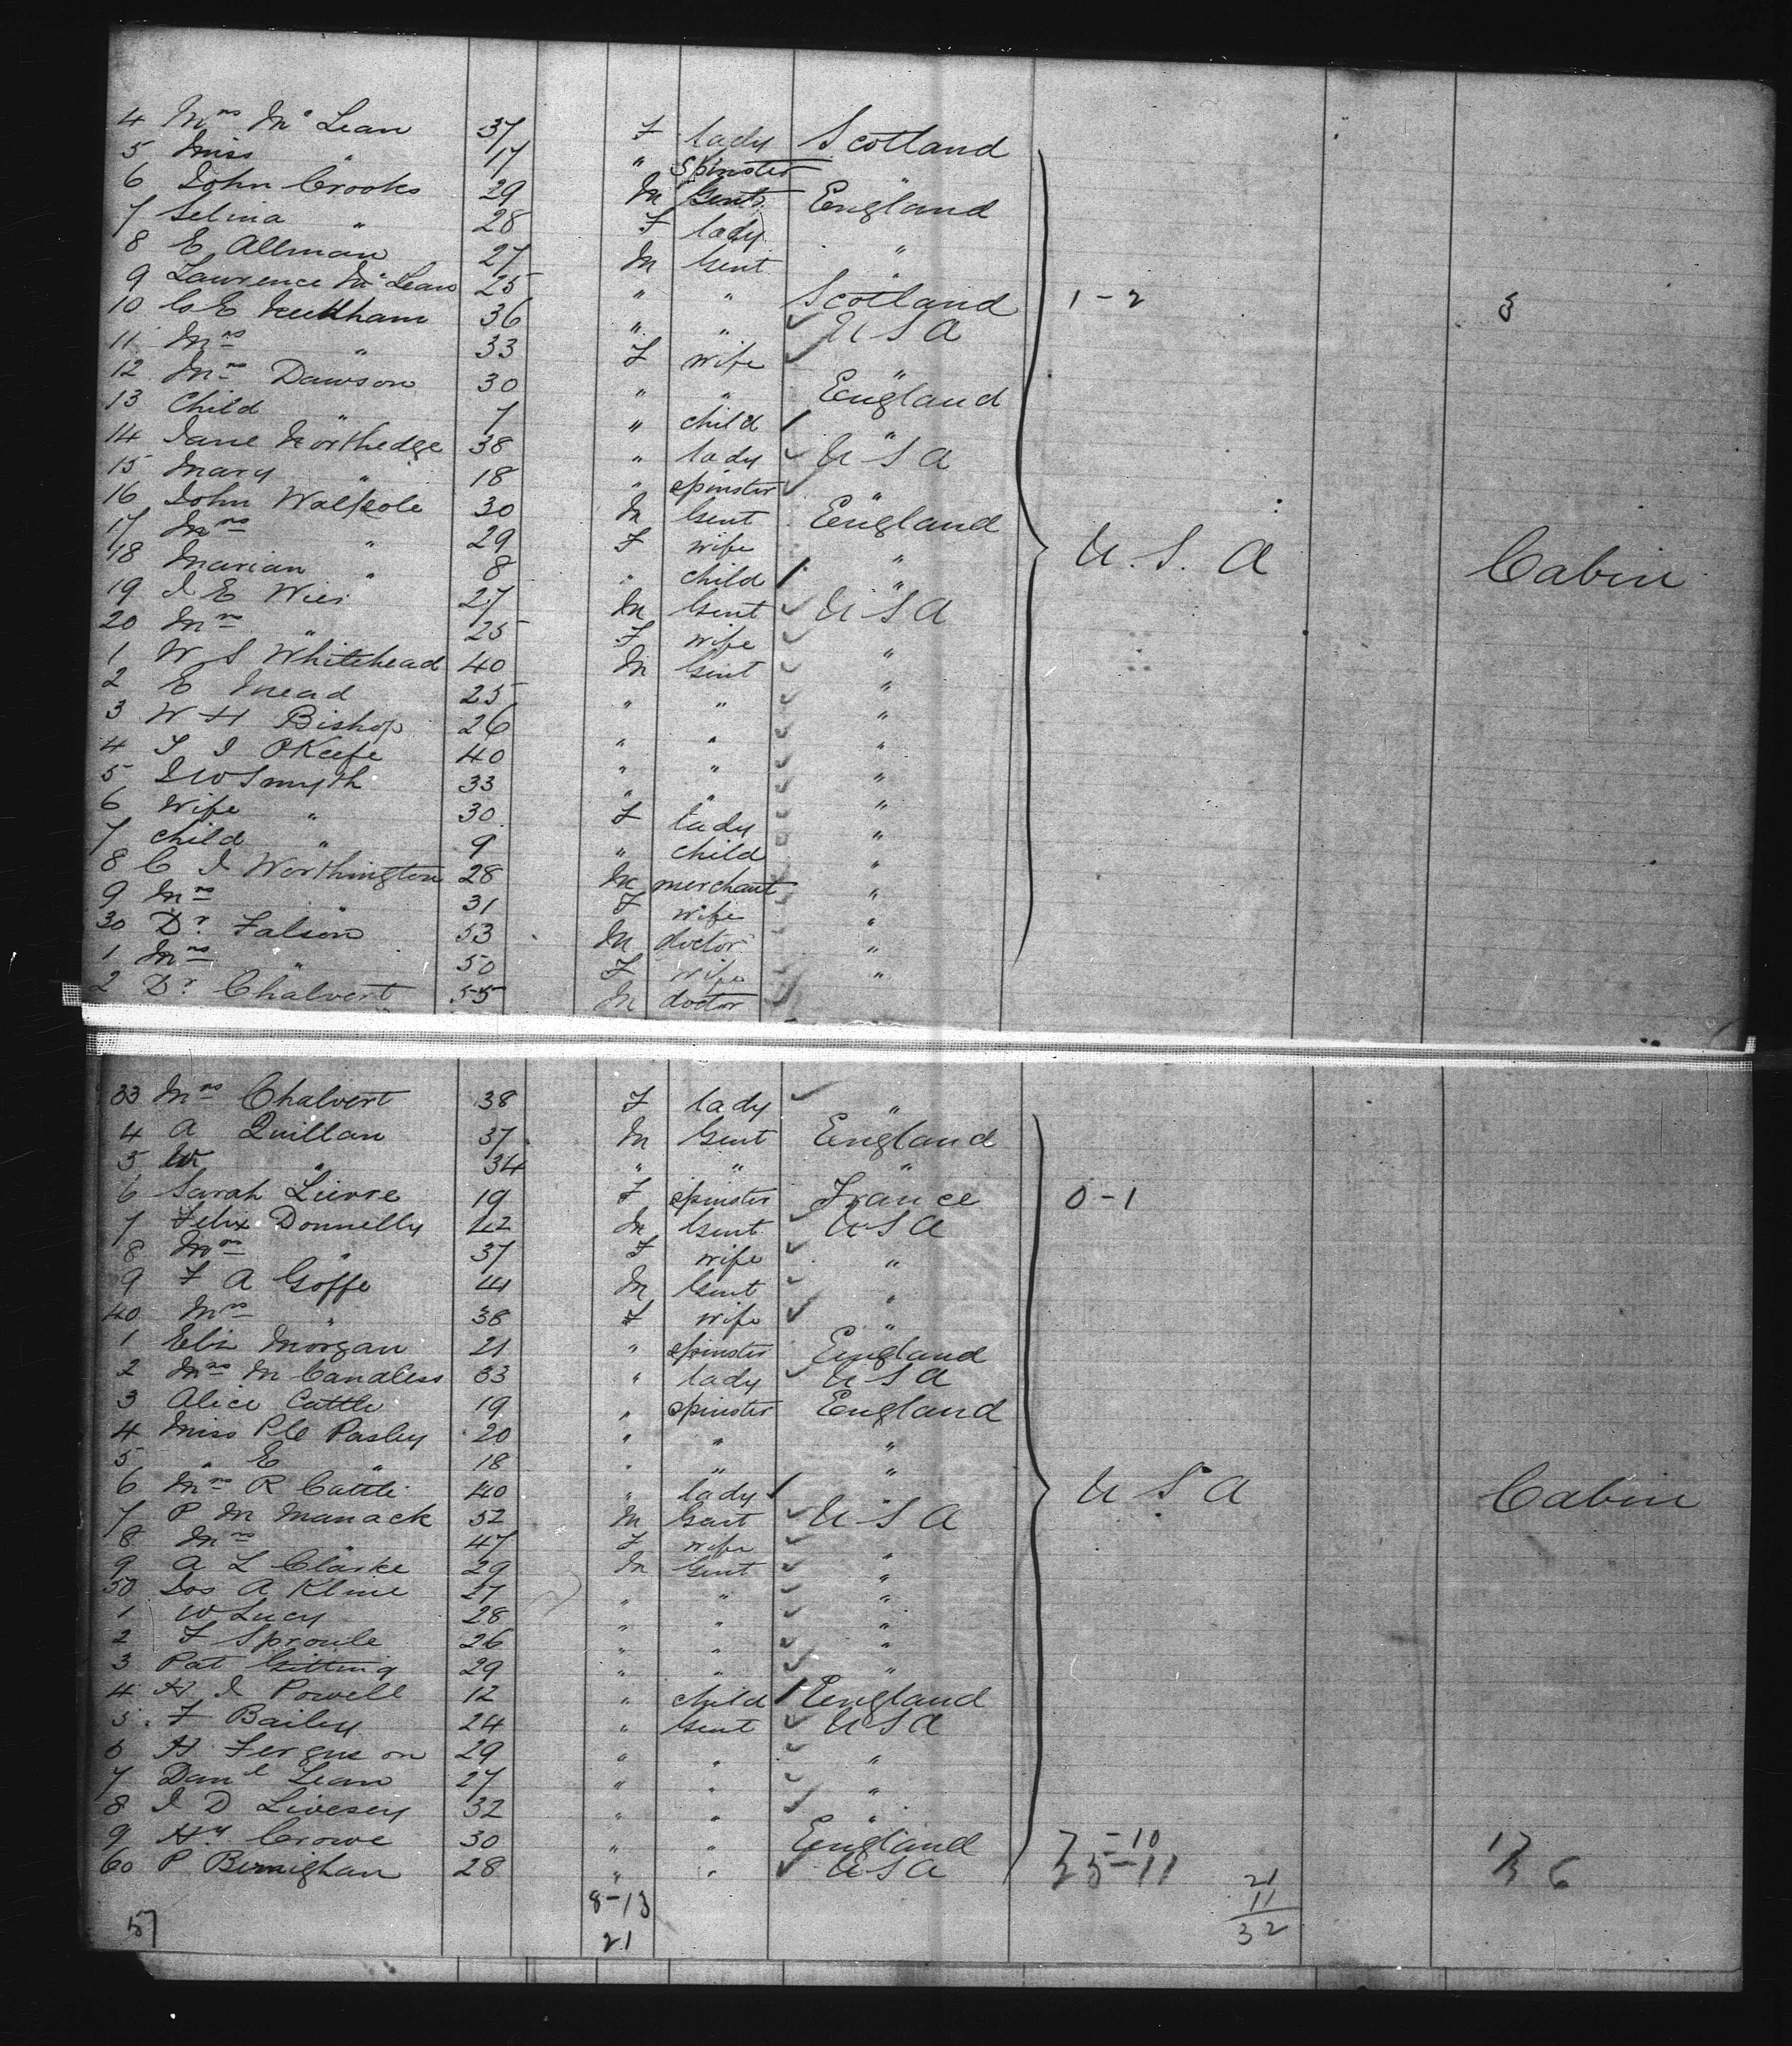 4 Mrs Mc Lean 37 F lady Scotland
5 Miss " 17 " Spinster "
6 John Crooks 29 M Gent England
7 Selina " 28 F lady "
8 E Allman 27 M Gent "
9 Lawrence Mc Lean 25 " " Scotland 1-2 3
10 C E 36 " " U S A
11 Mrs " 33 F wife "
12 Mrs Dawson 30 " " England
13 Child " 7 " child "
14 Jane Northedge 38 " lady U S A
15 Mary " 18 " spinster "
16 John Walpole 30 M Gent England
17 Mrs " 29 F wife " U. S. A Cabin
18 Marian " 8 " child "
19 J E Wier 27 M Gent U S A
20 Mrs " 25 F wife "
1 W S Whitehead 40 M Gent "
2 E Mead 25 " " "
3 W H Bishop 26 " " "
4 T J OKeefe 40 " " "
5 J W Smyth 33 " " "
6 Wife " 30 F lady "
7 child " 9 " child "
8 C J Worthington 28 M merchant "
9 Mrs " 31 F wife "
30 Dr Falson 53 M doctor "
1 Mrs " 50 F wife "
2 Dr Chalvert 55 M doctor
33 Mrs Chalvert 38 F lady "
4 A Quillan 37 M Gent England
5 W " 34 " " "
6 Sarah Lievre 19 F spinster France 0-1
7 Felix Donnelly 42 M Gent U S A
8 Mrs " 37 F wife "
9 F A Goffe 41 M Gent "
40 Mrs " 38 F wife "
1 Eliz Morgan 21 " spinster England
2 Mrs Mc Candless 33 " lady U S A
3 Alice Cattle 19 " spinster England
4 Miss Pasley 20 " " "
5 " E " 18 " " "
6 Mrs R Cattle 40 " lady U S A Cabin
7 P M Manack 52 M Gent U S A
8 Mrs " 47 F wife "
9 A L Clarke 29 M Gent "
50 Jos A Kline 27 " " "
1 W Lucy 28 " " "
2 F Sproule 26 " " "
3 Pat Gitting 29 " " "
4 H J Powell 12 " child England
5 F Bailey 24 " Gent U S A
6 H Ferguson 29 " " "
7 Danl Lean 27 " " "
8 J D Livesey 32 " " "
9 Hy Crowe 30 " " England
60 P Bernighan 28 " " U S A
8-13
21
21
11
32
57